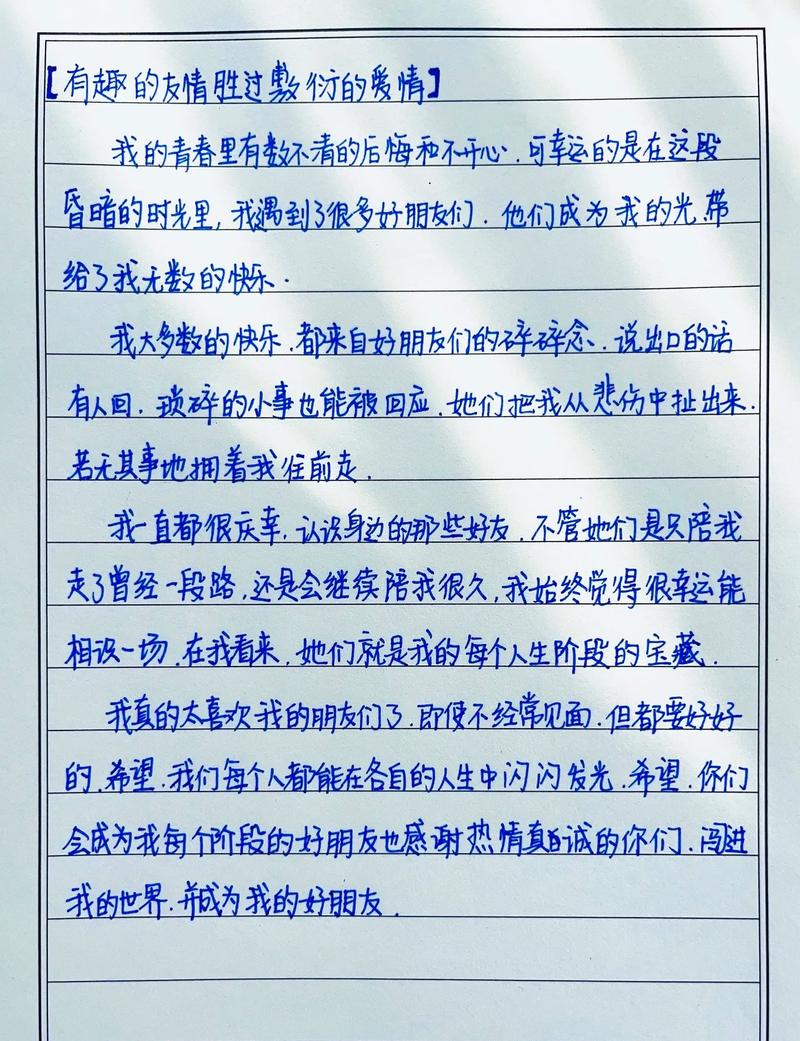 【有趣的友情胜过敷衍的爱情】
我的青春里有数不清的后悔和不开心.可幸运的是在这段
昏暗的时光里,我遇到了很多好朋友们.他们成为我的光.带
给了我无数的快乐.
我大多数的快乐.都来自好朋友们的碎碎念.说出口的话
有人回.琐碎的小事也能被回应.她们把我从悲伤中扯出来.
若无其事地拥着我往前走.
我一直都很庆幸.认识身边的那些好友.不管她们是只陪我
走了曾经一段路.还是会继续陪我很久,我始终觉得很幸运能
相识一场.在我看来.她们就是我的每个人生阶段的宝藏.
我真的太喜欢我的朋友们了.即使不经常见面.但都要好好
的.希望.我们每个人都能在各自的人生中闪闪发光.希望.你们
会成为我每个阶段的好朋友也感谢热情真诚的你们.闯进
我的世界.并成为我的好朋友.